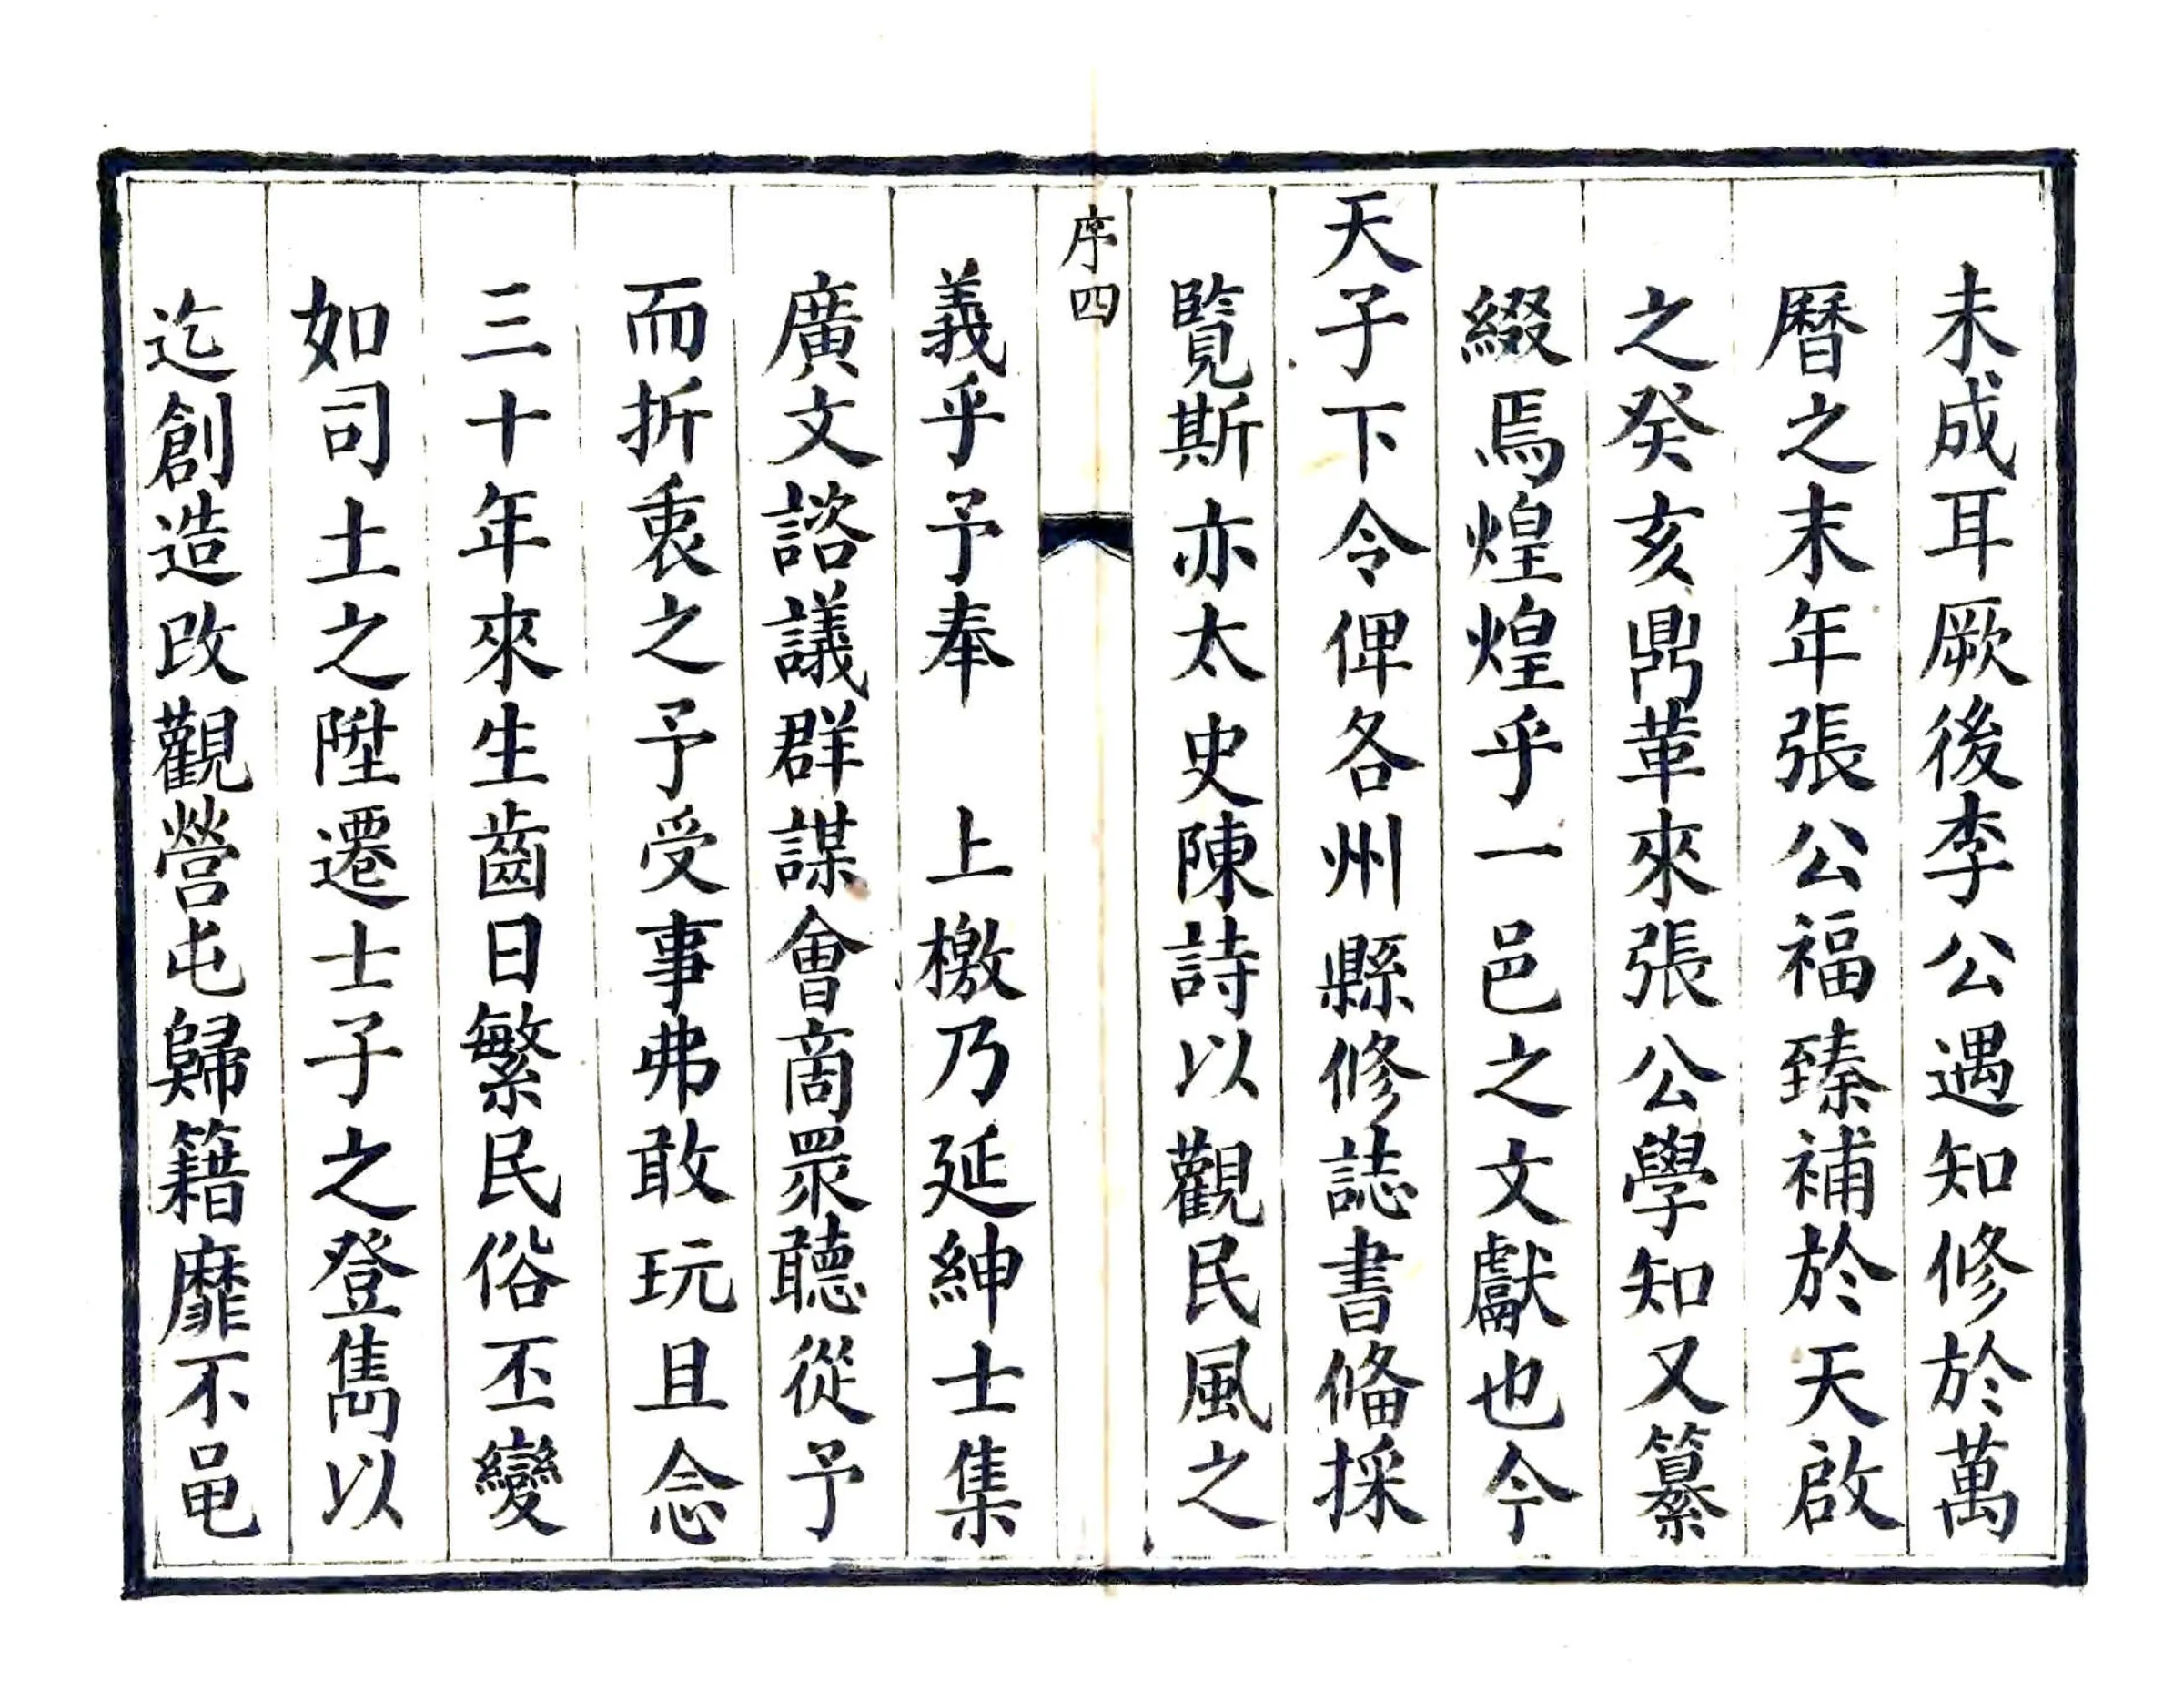 未成耳厥後李公遇知修於萬
曆之末年張公福臻補於天啟
之癸亥鼎革來張公學知又纂
綴焉煌煌乎一邑之文獻也今
天子下令俾各州縣修誌書俻採
覽斯亦太史陳詩以觀民風之
序四
義乎予奉 上檄乃延紳士集
廣文諮議群謀會啇眾聽從予
而折衷之予受事弗敢玩且念
三十年來生齒日繁民俗丕變
如司土之陞遷士子之登雋以
迄創造改觀營屯歸籍靡不黾